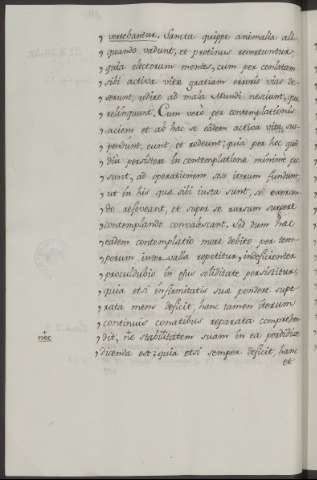 vertebantur. Sancta quippe animalia ali
quando vadunt, et protinus revertuntur;
quia electorum mentes, cum per conlatam
sibi activæ vitæ gratiam erroris vias de
serunt, redire ad mala Mundi nesciunt, quæ
relinquunt. Cum verò per contemplationis
aciem et ab hac se eadem activa vita sus
pendunt, eunt, et redeunt; quia per hoc quò
diu persistere in contemplatione minimè pos
sunt, ad operationem sese iterum fundunt
ut in his quæ sibi iuxta sunt, se exercen
do refoveant, et super se rursum surgere
contemplando convalescant. Sed dum hæc
eadem contemplatio more debito per tem
porum intervalla repetitur, indeficienter
proculdubio in ejus soliditate persistitur;
quia etsi infirmitatis suæ pondere supe
rata mens deficit, hanc tamen iterum
continuis conatibus reparata comprehen
dit, ne
nec
stabilitatem suam in ea perdidisse
dicenda est; quia etsi semper deficit, hanc
et